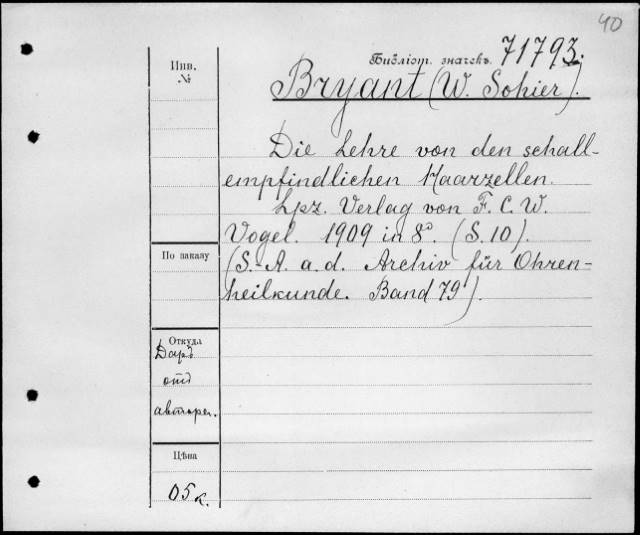 40
Библіот. значекъ. 71793.
Инв.
№
Bryant (W. Sohier).
Die Lehre von den schall-
empfindlichen Haarzellen.
Lpz. Verlag von F. C. W.
Vogel. 1909 in 8°. (S. 10).
(S.-A. a. d. Archiv für Ohren-
heilkunde. Band 79).
По заказу
Откуда
Даръ
отъ
автора.
Цѣна
05 к.